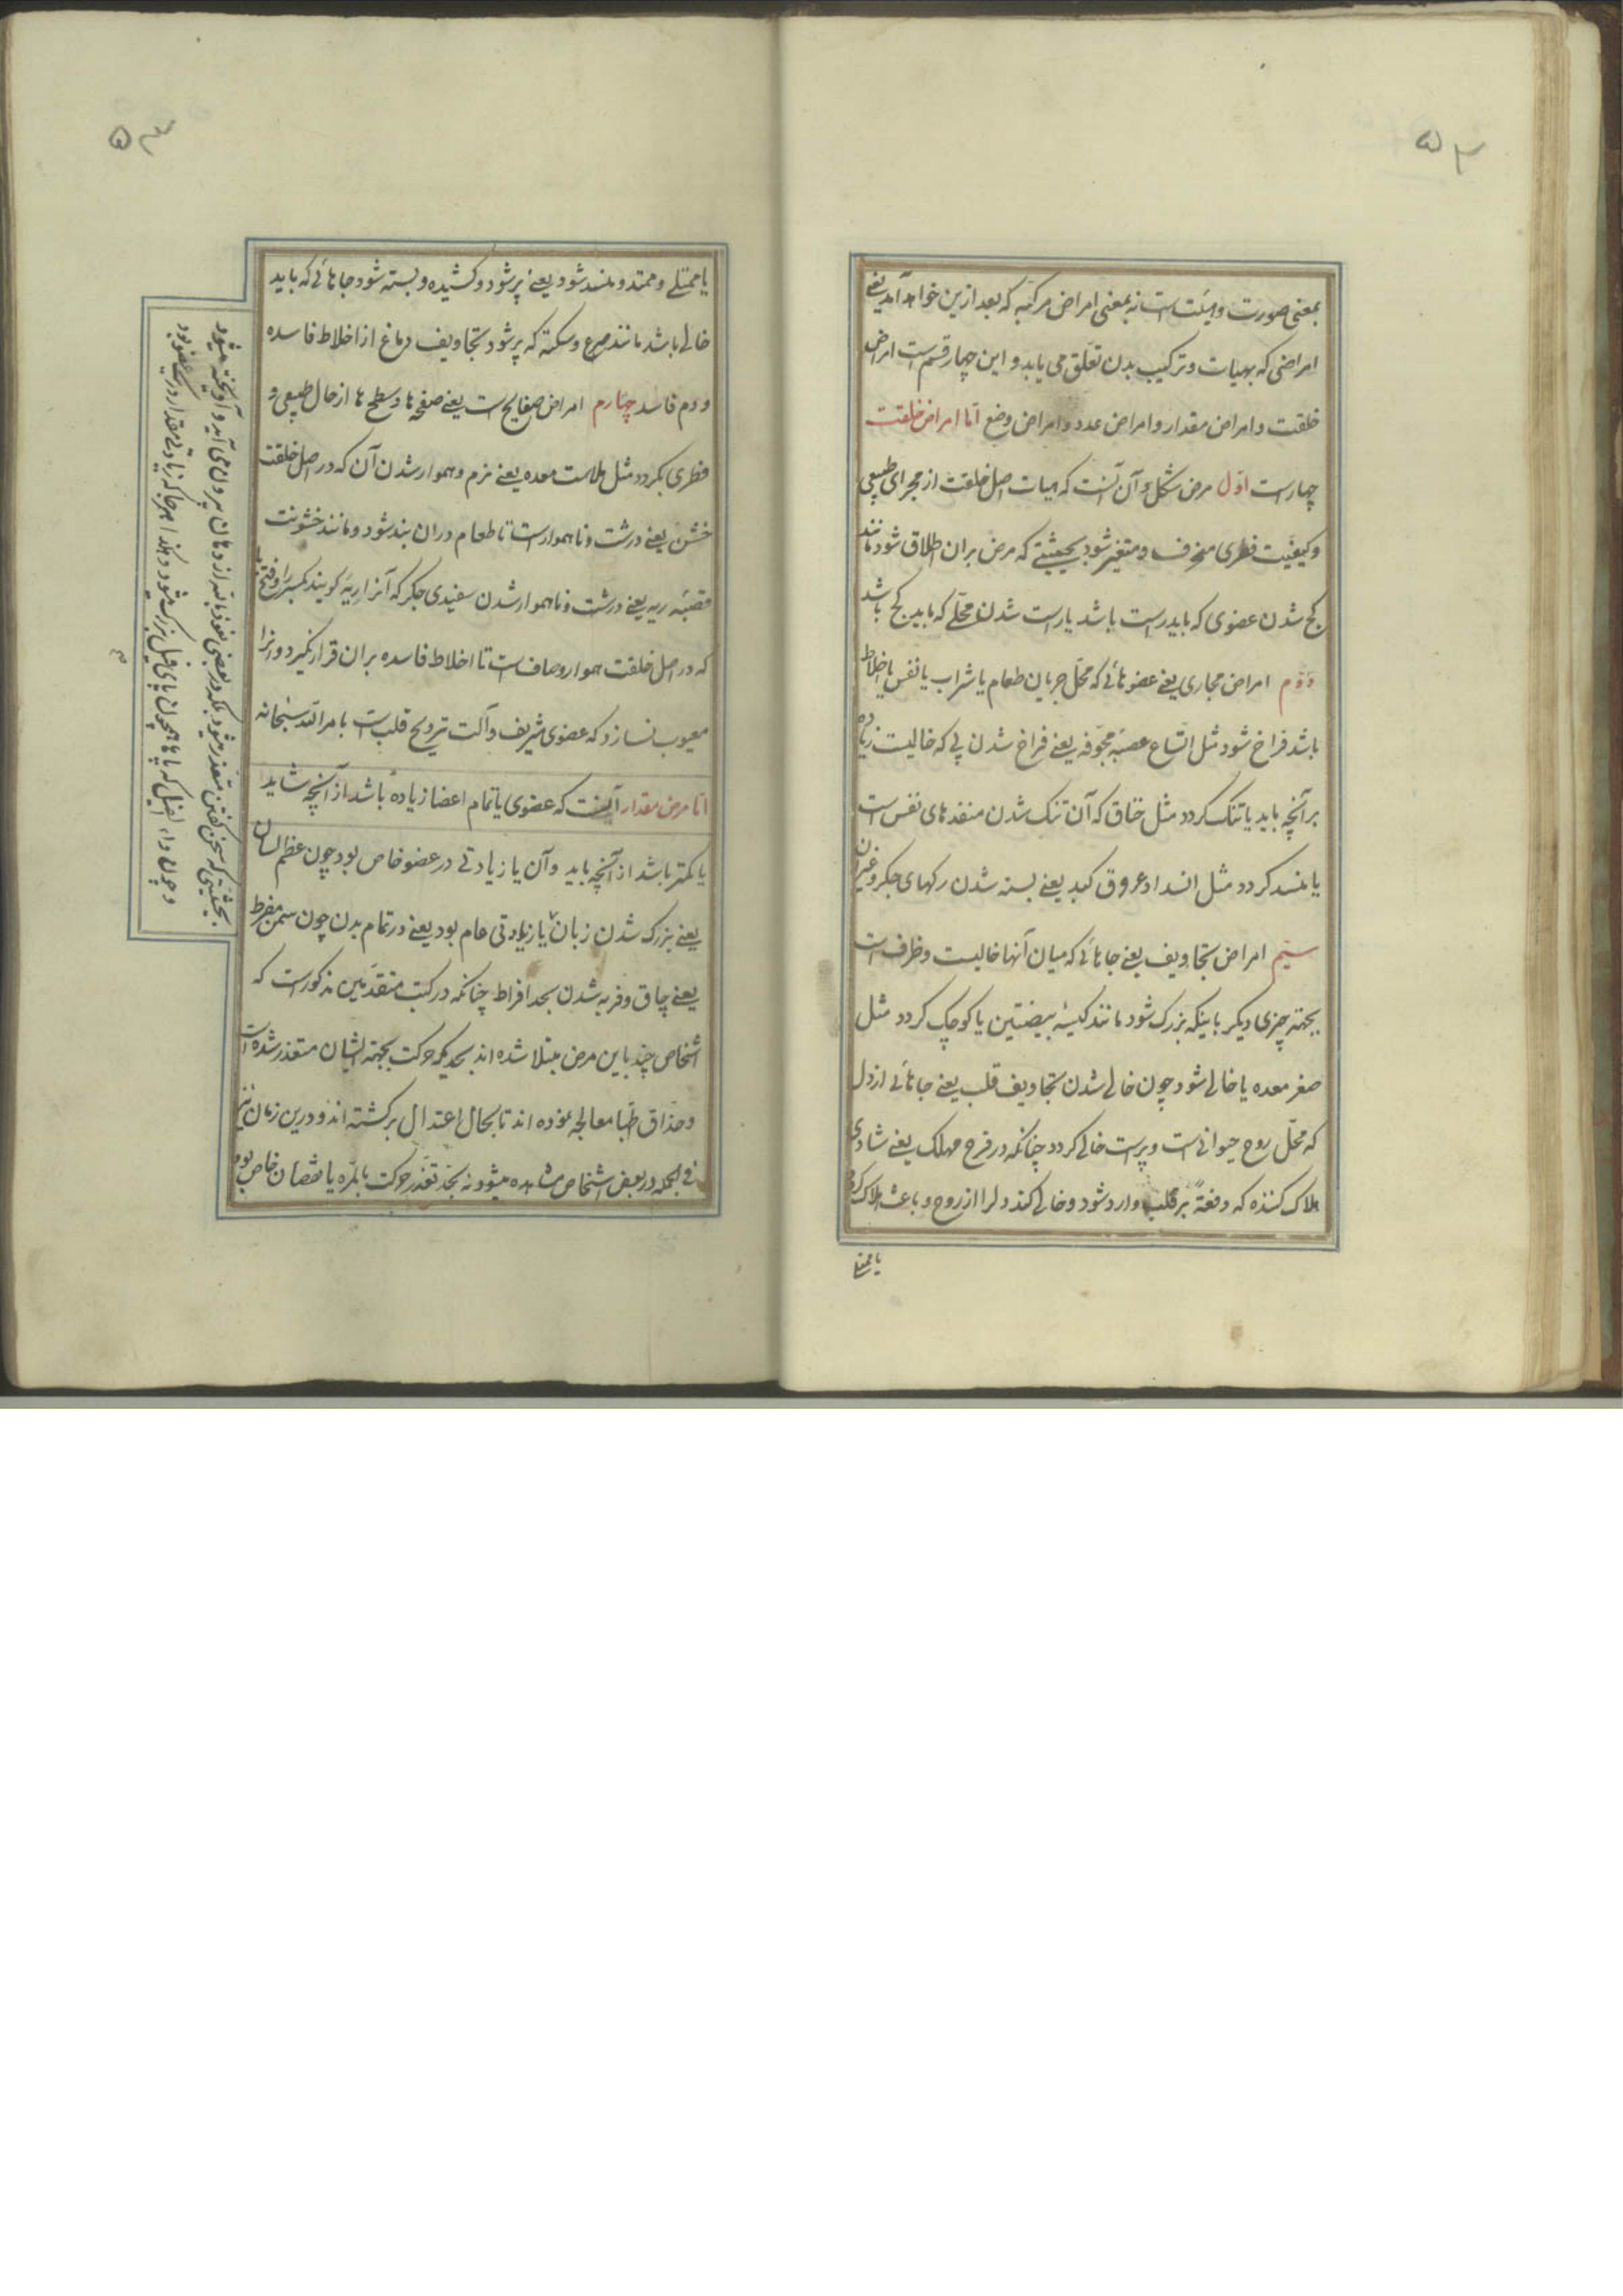 ۵۳
بمعنی صورت و هیئت است نه بمعنی امراض مرکبه که بعد ازین خواهد آمد یعنی
امراضی که بهیات و ترکیب بدن تعلّق می یابد و این چهار قسم است امراض
خلقت و امراض مقدار و امراض عدد و امراض وضع امّا امراض خلقت
چهار است اوّل مرض شکل و آن آنست که هیات اصل خلقت از مجرای طبیعی
و کیفیت فطری منحرف و متغیر شود بحیثیتی که مرض بران اطلاق شود مانند
کج شدن عضوی که باید راست باشد یا راست شدن محلّی که باید کج باشد
دوّم امراض مجاری یعنی عضوهائی که محل جریان طعام یا شراب یا نفس یا اخلاط
باشد فراخ شود مثل اتّساع عصبهٔ مجوّفه یعنی فراخ شدن پی که خالیست زیاده
بر آنچه باید یا تنک کردد مثل خناق که آن تنک شدن منفذهای نفس است
یا منسد کردد مثل انسداد عروق کبد یعنی بسته شدن رکهای جکر و غیر آن
سیّم امراض تجاویف یعنی جاهائی که میان آنها خالیست و ظرف است
بجهة چیزی دیکر باینکه بزرک شود مانند کیسهٔ بیضتین یا کوچک کردد مثل
صغر معده یا خالی شود چون خالی شدن تجاویف قلب یعنی جاهائی از دل
که محلّ روح حیوانی است و پر است خالی کردد چنانکه در فرح مهلک یعنی شادی
هلاک کننده که دفعةً بر قلب وارد شود و خالی کند دل را از روح و باعث هلاک کردد
یا ممتلی
۵۴
یا ممتلی و ممتد و منسد شود یعنی پر شود و کشیده و بسته شود جاهائی که باید
خالی باشد مانند صرع و سکته که پر شود تجاویف دماغ از اخلاط فاسده
و دم فاسد چهارم امراض صفایح است یعنی صفحه ها و سطح ها از حال طبیعی و
فطری بکردد مثل ملاست معده یعنی نرم و هموار شدن آن که در اصل خلقت
خشن یعنی درشت و ناهموار است تا طعام دران بند شود و مانند خشونت
قصبهٔ ریه یعنی درشت و ناهموار شدن سفیدی جکر که آنرا ریه کویند بکسر را و فتح یا
که در اصل خلقت هموار و صاف است تا اخلاط فاسده بران قرار نکیرد و انرا
معیوب نسازد که عضوی شریف و آلت ترویح قلب است بامر اللّه سبحانه
امّا مرض مقدار آنست که عضوی یا تمام اعضا زیاده باشد از آنچه شاید
یا کمتر باشد از آنچه باید و آن یا زیادتی در عضو خاص بود چون عظم لسان
یعنی بزرک شدن زبان یا زیادتی عام بود یعنی در تمام بدن چون سمن مفرط
یعنی چاق و فربه شدن بحد افراط چنانکه در کتب متقدّمین مذکور است که
اشخاص چند باین مرض مبتلا شده اند بحدیکه حرکت بجهة ایشان متعذر شده است
و حذّاق اطبّا معالجه نموده اند تا بحال اعتدال برکشته اند و درین زمان نیز
فی الجمله در بعض اشخاص مشاهده میشود نه بحد تعذّر حرکت بالمرّه یا نقصان خاص بود
بحیثیتی که سخن کفتن متعذر میشود بلکه در بعضی از دهان بیرون می آید و آویخته میشود
و چون داء الفیل که پاها همچون پای فیل بزرک میشود